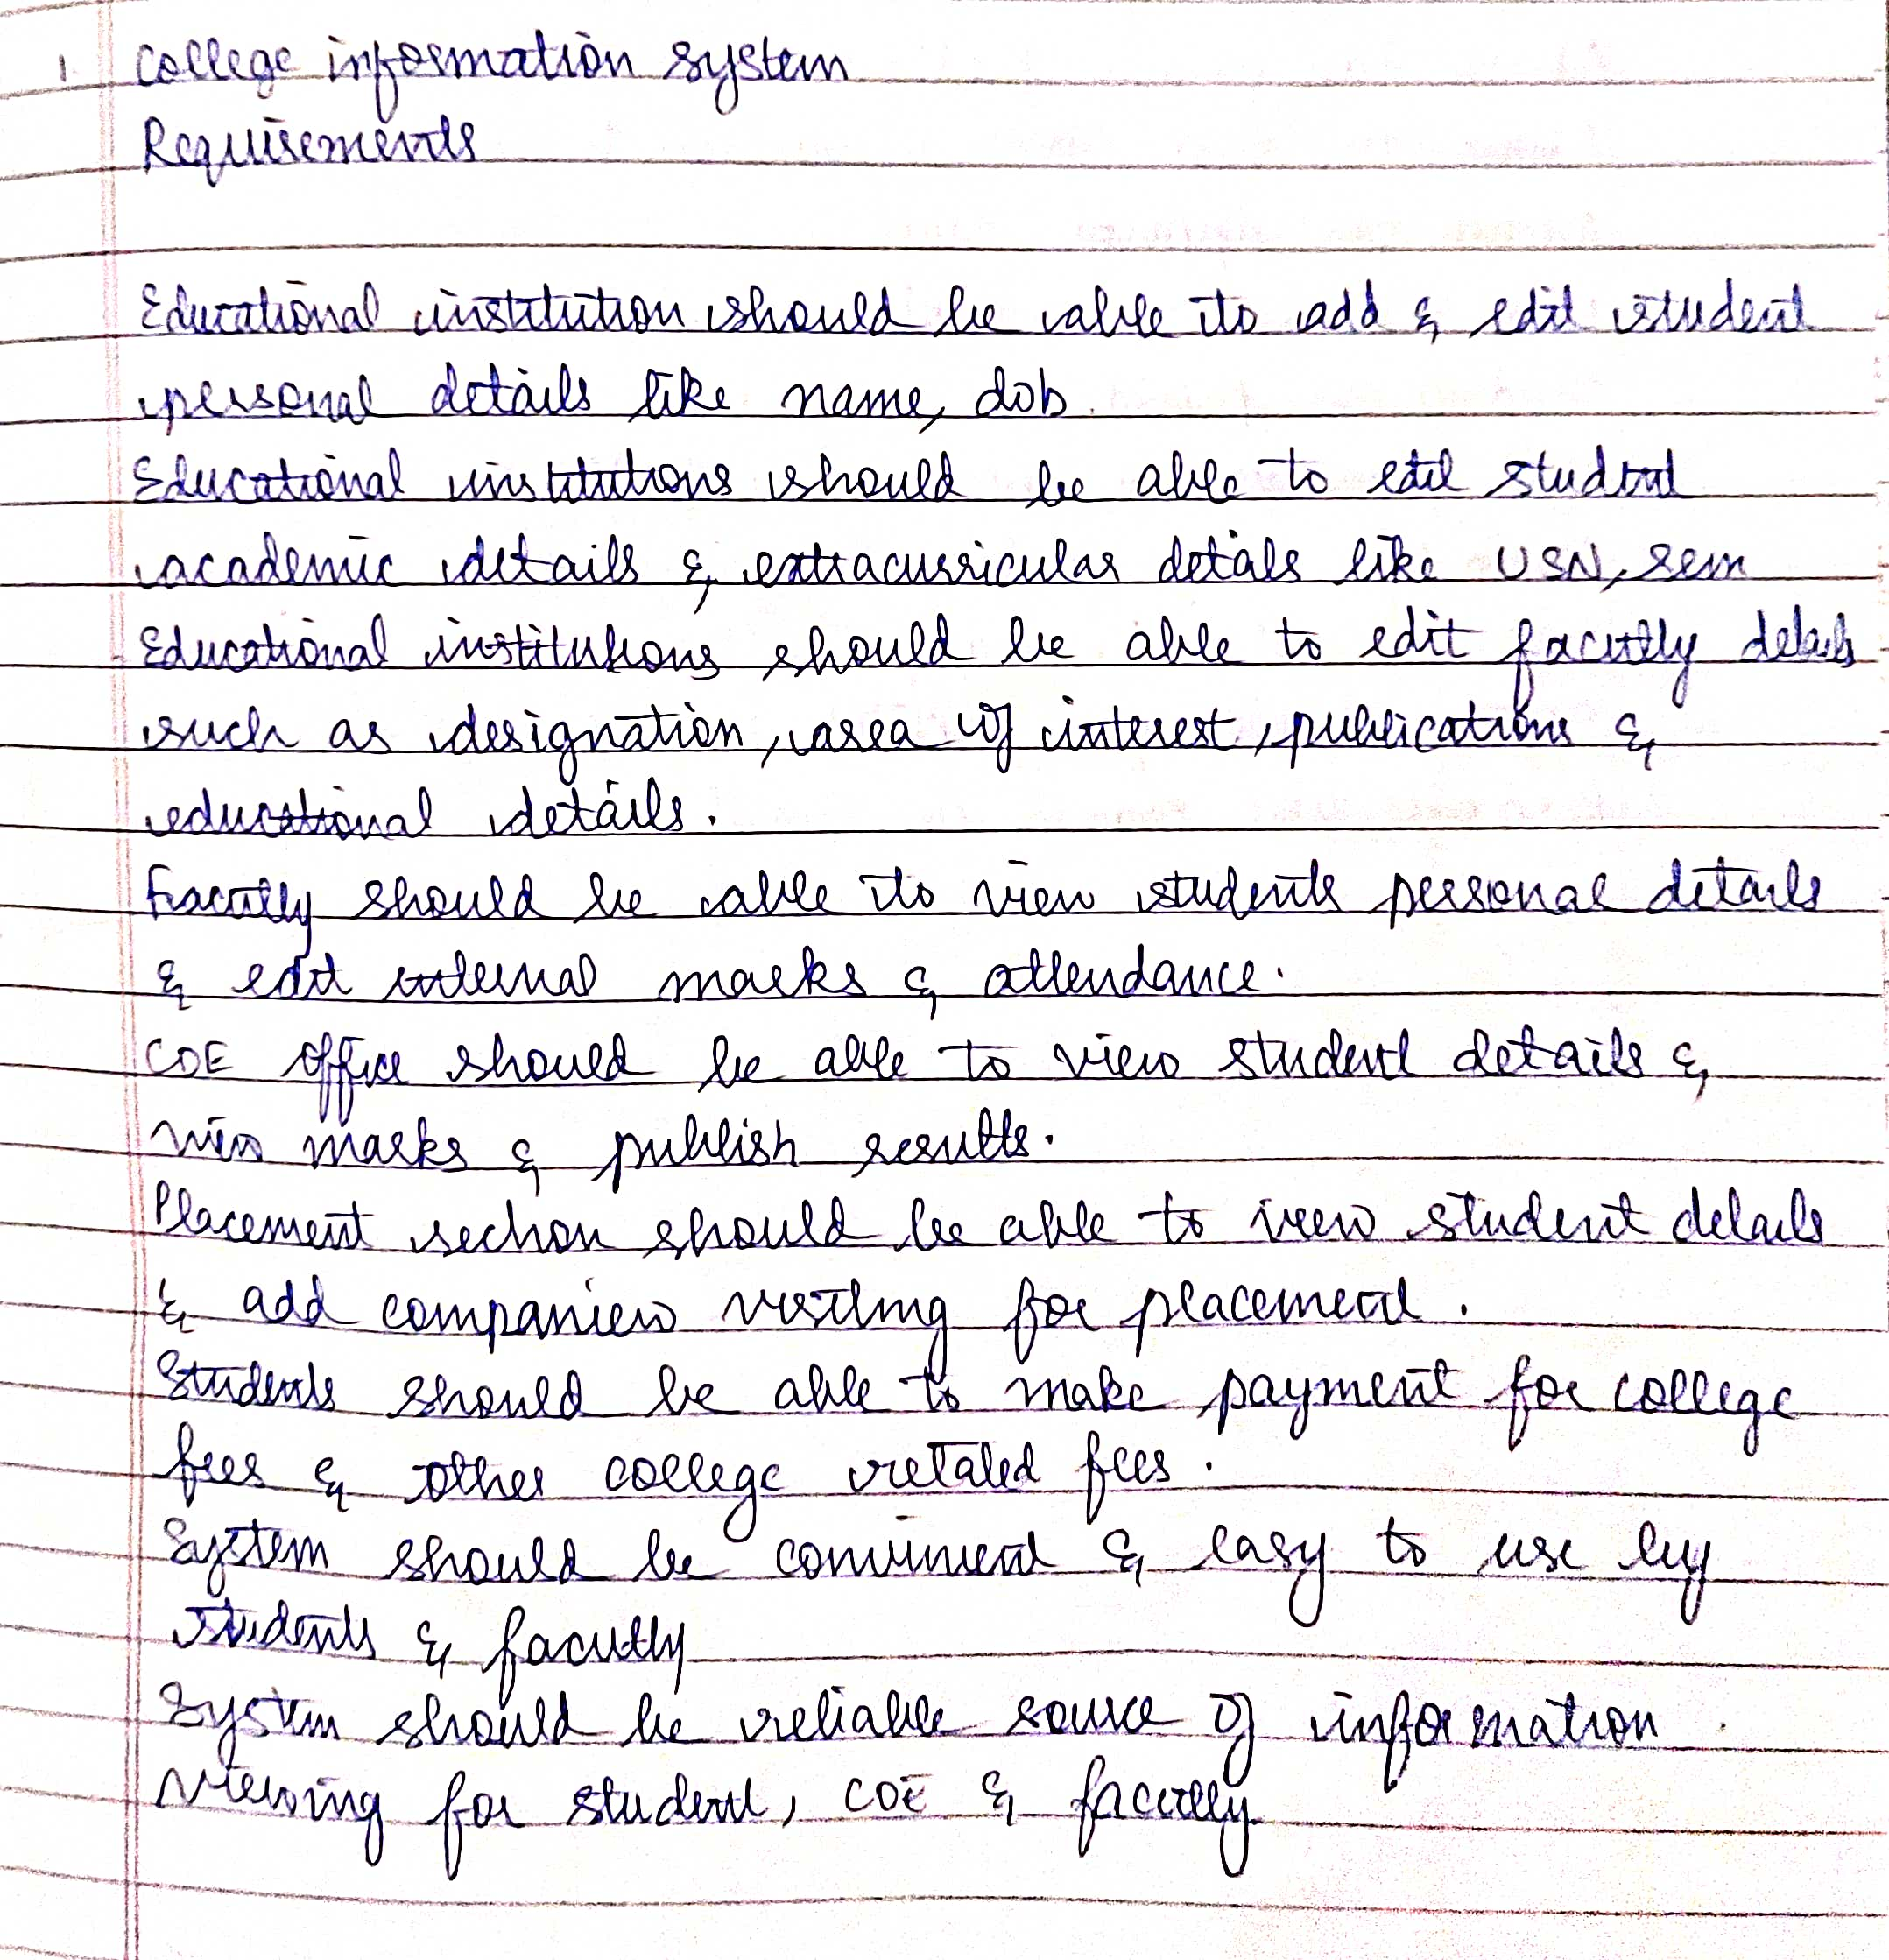 1 College information system
Requirements
Educational institution should be able to add & edit student
personal details like name, dob.
Educational institutions should be able to edit student
academic details & extracurricular details like USN, sem
Educational institutions should be able to edit faculty details
such as designation, area of interest, publications &
educational details.
Faculty should be able to view students personal details
& edit internal marks & attendance.
COE office should be able to view student details &
view marks & publish results.
Placement section should be able to view student details
& add companies visiting for placement.
Students should be able to make payment for college
fees & other college related fees.
System should be convinient & easy to use by
students & faculty
System should be reliable source of information.
viewing for student, COE & faculty